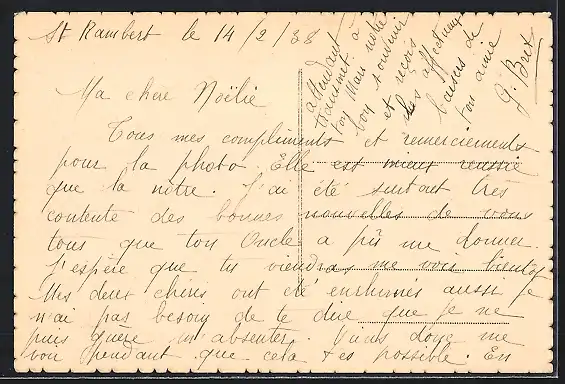 St Rambert le 14/2/38
Ma chère Noëlie
Tous mes compliments et remerciements
pour la photo. Elle est mieux réussie
que la nôtre. J'ai été surtout très
contente des bonnes nouvelles de vous
tous que ton Oncle a pû me donner.
J'espère que tu viendras me voir bientôt
Mes deux chéris ont été enrhumés aussi je
n'ai pas besoin de te dire que je ne
puis guère m'absenter. Viens donc me
voir pendant que cela t'es possible. En
attendant
transmet à
ton Mari notre
bon souvenir
et reçois
les affectueux
baisers de
ton amie
G. Bret